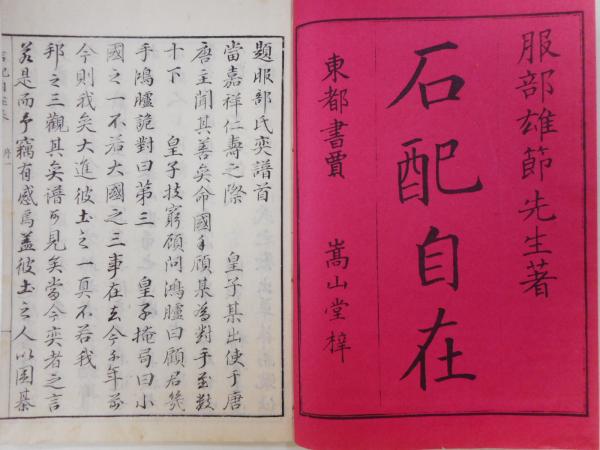 服部雄節先生著
石配自在
東都書賈　嵩山堂梓
題服部氏奕譜首
當嘉祥仁壽之際　皇子某出使于唐
唐主聞其善奕命國手顧某為對手至數
十下　皇子技窮顧問鴻臚曰顧君幾
手鴻臚詭對曰第三　皇子掩局曰小
國之一不若大國之三事在去今千年前
今則我奕大進彼土之一真不若我
邦之三觀其奕譜可見矣當今奕者之言
若是而予竊有感焉蓋彼土之人以圍棊